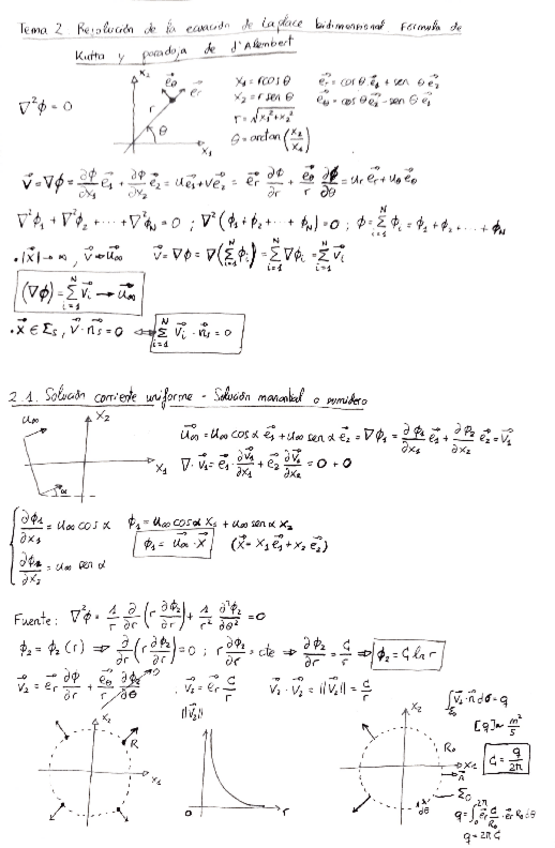 Tema 2 Resolución de la ecuación de Laplace bidimensional. Fórmula de
Kutta y paradoja de d'Alembert
∇²ϕ = 0
x₂
e⃗_θ
e⃗_r
r
θ
x₁
x₁ = r cos θ
x₂ = r sen θ
r = √(x₁² + x₂²)
θ = arctan(x₂/x₁)
e⃗_r = cos θ e⃗₁ + sen θ e⃗₂
e⃗_θ = cos θ e⃗₂ - sen θ e⃗₁
v⃗ = ∇ϕ = ∂ϕ/∂x₁ e⃗₁ + ∂ϕ/∂x₂ e⃗₂ = u e⃗₁ + v e⃗₂ = e⃗_r ∂ϕ/∂r + e⃗_θ/r ∂ϕ/∂θ = u_r e⃗_r + u_θ e⃗_θ
∇²ϕ₁ + ∇²ϕ₂ + ... + ∇²ϕ_N = 0 ; ∇²(ϕ₁ + ϕ₂ + ... + ϕ_N) = 0 ; ϕ = Σ_{i=1}^{N} ϕ_i = ϕ₁ + ϕ₂ + ... + ϕ_N
. |x⃗| → ∞, v⃗ → u⃗∞ v⃗ = ∇ϕ = ∇(Σ_{i=1}^{N} ϕ_i) = Σ_{i=1}^{N} ∇ϕ_i = Σ_{i=1}^{N} v⃗_i
(∇ϕ) = Σ_{i=1}^{N} v⃗_i → u⃗∞
. x⃗ ∈ Σ_s, v⃗ · n⃗_s = 0 ⟺ Σ_{i=1}^{N} v⃗_i · n⃗_s = 0
2.1. Solución corriente uniforme - Solución manantial o sumidero
u∞
x₂
x₁
α
u⃗∞ = u∞ cos α e⃗₁ + u∞ sen α e⃗₂ = ∇ϕ₁ = ∂ϕ₁/∂x₁ e⃗₁ + ∂ϕ₂/∂x₂ e⃗₂ = v⃗₁
∇ · v⃗₁ = e⃗₁ · ∂v⃗₁/∂x₁ + e⃗₂ ∂v⃗₁/∂x₂ = 0 + 0
∂ϕ₁/∂x₁ = u∞ cos α ϕ₁ = u∞ cos α x₁ + u∞ sen α x₂
ϕ₁ = u⃗∞ · x⃗ (x⃗ = x₁ e⃗₁ + x₂ e⃗₂)
∂ϕ₂/∂x₂ = u∞ sen α
Fuente: ∇²ϕ = 1/r ∂/∂r (r ∂ϕ₂/∂r) + 1/r² ∂²ϕ₂/∂θ² = 0
ϕ₂ = ϕ₂(r) ⇒ ∂/∂r (r ∂ϕ₂/∂r) = 0 ; r ∂ϕ₂/∂r = cte ⇒ ∂ϕ₂/∂r = C/r ⇒ ϕ₂ = C ln r
v⃗₂ = e⃗_r ∂ϕ/∂r + e⃗_θ/r ∂ϕ₂/∂θ . v⃗₂ = e⃗_r C/r v⃗₂ · v⃗₂ = ||v⃗₂|| = C/r
x₂
R
x₁
||v⃗₂||
0
r
x₂
R₀
x₁
n⃗
Σ₀
dθ
∫_{Σ₀} v⃗₂ · n⃗ dσ = q
[q] ~ m²/s
C = q/2π
q = ∫₀^{2π} e⃗_r C/R₀ · e⃗_r R₀ dθ
q = 2π C